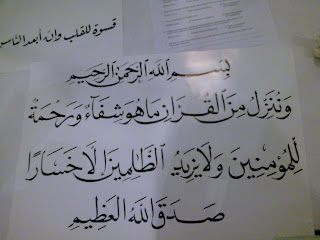 قسوة للقلب وإنه أبعد الناس
بسم الله الرحمن الرحيم
وَنُنَزِّلُ مِنَ الْقُرْآنِ مَا هُوَ شِفَاءٌ وَرَحْمَةٌ
لِلْمُؤْمِنِينَ وَلَا يَزِيدُ الظَّالِمِينَ إِلَّا خَسَارًا
صَدَقَ اللهُ الْعَظِيمُ